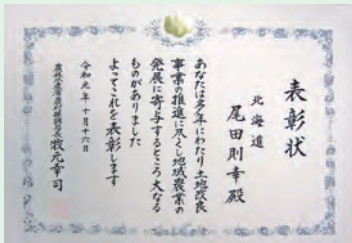 表彰状
北海道
尾田則幸殿
あなたは多年にわたり土地改良
事業の推進に尽くし地域農業の
発展に寄与するところ大なる
ものがありました
よってこれを表彰します
令和元年十月十六日
農林水産省農村振興局長 牧元幸司